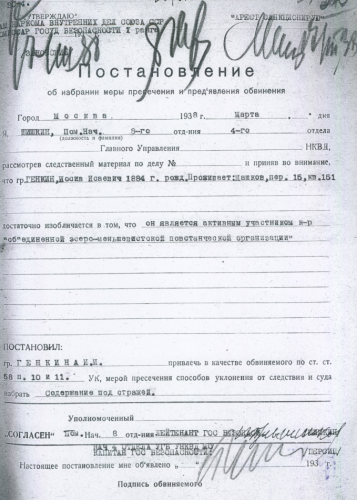 УТВЕРЖДАЮ" "АРЕСТ САНКЦИОНИРУЮ"
НАРКОМА ВНУТРЕННИХ ДЕЛ СОЮЗА ССР
ГОСУД БЕЗОПАСНОСТИ I ранга
Постановление
об избрании меры пресечения и пред'явления обвинения
Город Москва 1938 г. Марта " дня
Я, ШИШКИН, Пом.Нач. 8-го отд-ния 4-го отдела
(должность и фамилия)
Главного Управления НКВД,
рассмотрев следственный материал по делу № и приняв во внимание,
что гр. ГЕНКИН, Иосиф Исаевич 1884 г. рожд. Проживает: пер. 15, кв. 151
достаточно изобличается в том, что он является активным участником к-р
"об'единенной эсеро-меньшевистской повстанческой организации"
ПОСТАНОВИЛ:
гр. ГЕНКИНА И.И. привлечь в качестве обвиняемого по ст. ст.
58 п. 10 и 11. УК, мерой пресечения способов уклонения от следствия и суда
избрать Содержание под стражей.
Уполномоченный
"СОГЛАСЕН" Пом. Нач. 8 отд-ния ЛЕЙТЕНАНТ ГОС
НАЧ 4 ОТДЕЛА
КАПИТАН ГОС БЕЗОПАСНОСТИ
Настоящее постановление мне об'явлено " " 193 г.
Подпись обвиняемого